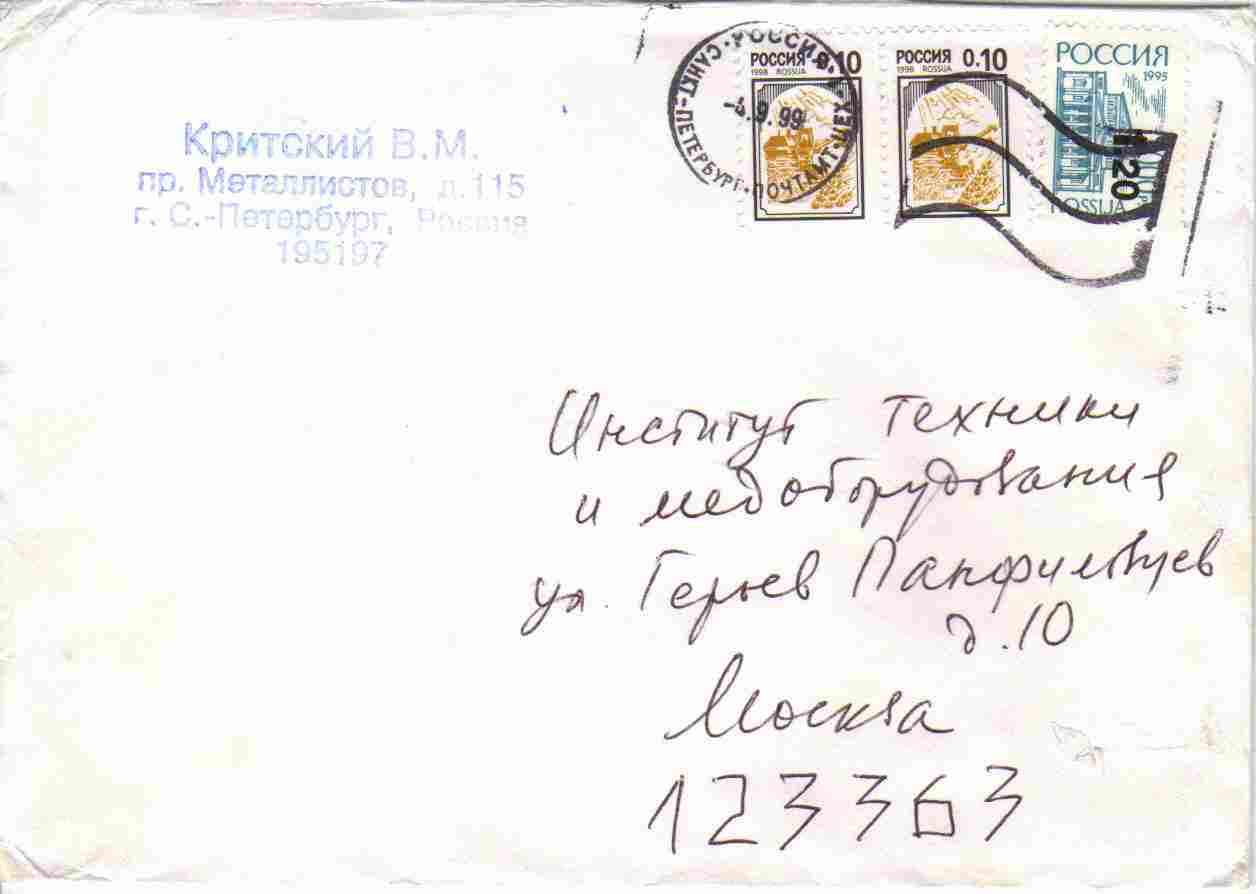 Критский В.М.
пр. Металлистов, д.115
г. С.-Петербург, Россия
195197
РОССИЯ 0.10
1998 ROSSIJA
РОССИЯ 0.10
1998 ROSSIJA
РОССИЯ
1995
ROSSIJA
1.20
РОССИЯ
САНКТ-ПЕТЕРБУРГ-ПОЧТАМТ-ЦЕХ
9.99
Институт техники
и медоборудования
ул. Героев Панфиловцев
д. 10
Москва
123363